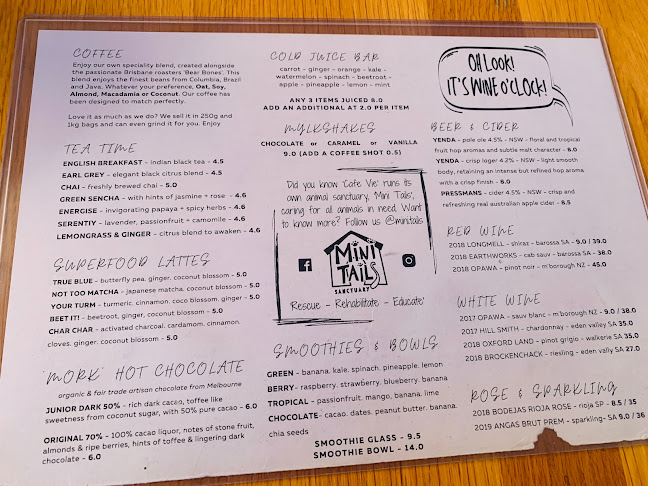 COFFEE
Enjoy our own speciality blend, created alongside
the passionate Brisbane roasters 'Bear Bones'. This
blend enjoys the finest beans from Columbia, Brazil
and Java. Whatever your preference, Oat, Soy,
Almond, Macadamia or Coconut. Our coffee has
been designed to match perfectly.
Love it as much as we do? We sell it in 250g and
1kg bags and can even grind it for you. Enjoy
TEA TIME
ENGLISH BREAKFAST - indian black tea - 4.5
EARL GREY - elegant black citrus blend - 4.5
CHAI - freshly brewed chai - 5.0
GREEN SENCHA - with hints of jasmine + rose - 4.6
ENERGISE - invigorating papaya + spicy herbs - 4.6
SERENTIY - lavender, passionfruit + camomile - 4.6
LEMONGRASS & GINGER - citrus blend to awaken - 4.6
SUPERFOOD LATTES
TRUE BLUE - butterfly pea, ginger, coconut blossom - 5.0
NOT TOO MATCHA - japanese matcha, coconut blossom - 5.0
YOUR TURM - turmeric, cinnamon, coco blossom, ginger - 5.0
BEET IT! - beetroot, ginger, coconut blossom - 5.0
CHAR CHAR - activated charcoal, cardamom, cinnamon,
cloves, ginger, coconut blossom - 5.0
MORK HOT CHOCOLATE
organic & fair trade artisan chocolate from Melbourne
JUNIOR DARK 50% - rich dark cacao, toffee like
sweetness from coconut sugar, with 50% pure cacao - 6.0
ORIGINAL 70% - 100% cacao liquor, notes of stone fruit,
almonds & ripe berries, hints of toffee & lingering dark
chocolate - 6.0
COLD JUICE BAR
carrot - ginger - orange - kale -
watermelon - spinach - beetroot -
apple - pineapple - lemon - mint
ANY 3 ITEMS JUICED 8.0
ADD AN ADDITIONAL AT 2.0 PER ITEM
MYLKSHAKES
CHOCOLATE or CARAMEL or VANILLA
9.0 (ADD A COFFEE SHOT 0.5)
Did you know 'Cafe Vie' runs its
own animal sanctuary, 'Mini Tails',
caring for all animals in need. Want
to know more? Follow us @minitails
MiNi
TAILS
SANCTUARY
Rescue - Rehabilitate - Educate'
SMOOTHIES & BOWLS
GREEN - banana, kale, spinach, pineapple, lemon
BERRY - raspberry, strawberry, blueberry, banana
TROPICAL - passionfruit, mango, banana, lime
CHOCOLATE- cacao, dates, peanut butter, banana,
chia seeds
SMOOTHIE GLASS - 9.5
SMOOTHIE BOWL - 14.0
OH LOOK!
IT'S WINE O'CLOCK!
BEER & CIDER
YENDA - pale ale 4.5% - NSW - floral and tropical
fruit hop aromas and subtle malt character - 8.0
YENDA - crisp lager 4.2% - NSW - light smooth
body, retaining an intense but refined hop aroma
with a crisp finish - 8.0
PRESSMANS - cider 4.5% - NSW - crisp and
refreshing real australian apple cider - 8.5
RED WINE
2018 LONGMELL - shiraz - barossa SA - 9.0 / 39.0
2018 EARTHWORKS - cab sauv - barossa SA - 38.0
2018 OPAWA - pinot noir - m'borough NZ - 45.0
WHITE WINE
2017 OPAWA - sauv blanc - m'borough NZ - 9.0 / 38.0
2017 HILL SMITH - chardonnay - eden valley SA 35.0
2018 OXFORD LAND - pinot grigio - walkerie SA 35.0
2018 BROCKENCHACK - riesling - eden vally SA 27.0
ROSE & SPARKLING
2018 BODEJAS RIOJA ROSE - rioja SP - 8.5 / 35
2019 ANGAS BRUT PREM - sparkling- SA 9.0 / 36